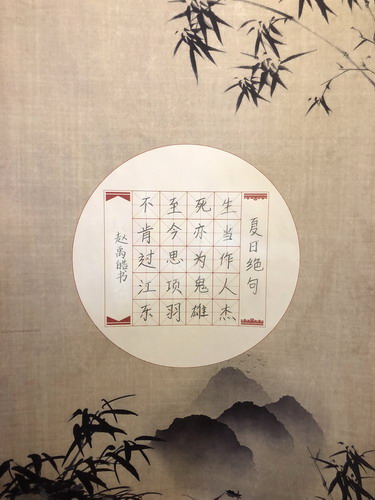 夏日绝句
生当作人杰
死亦为鬼雄
至今思项羽
不肯过江东
赵禹皓书